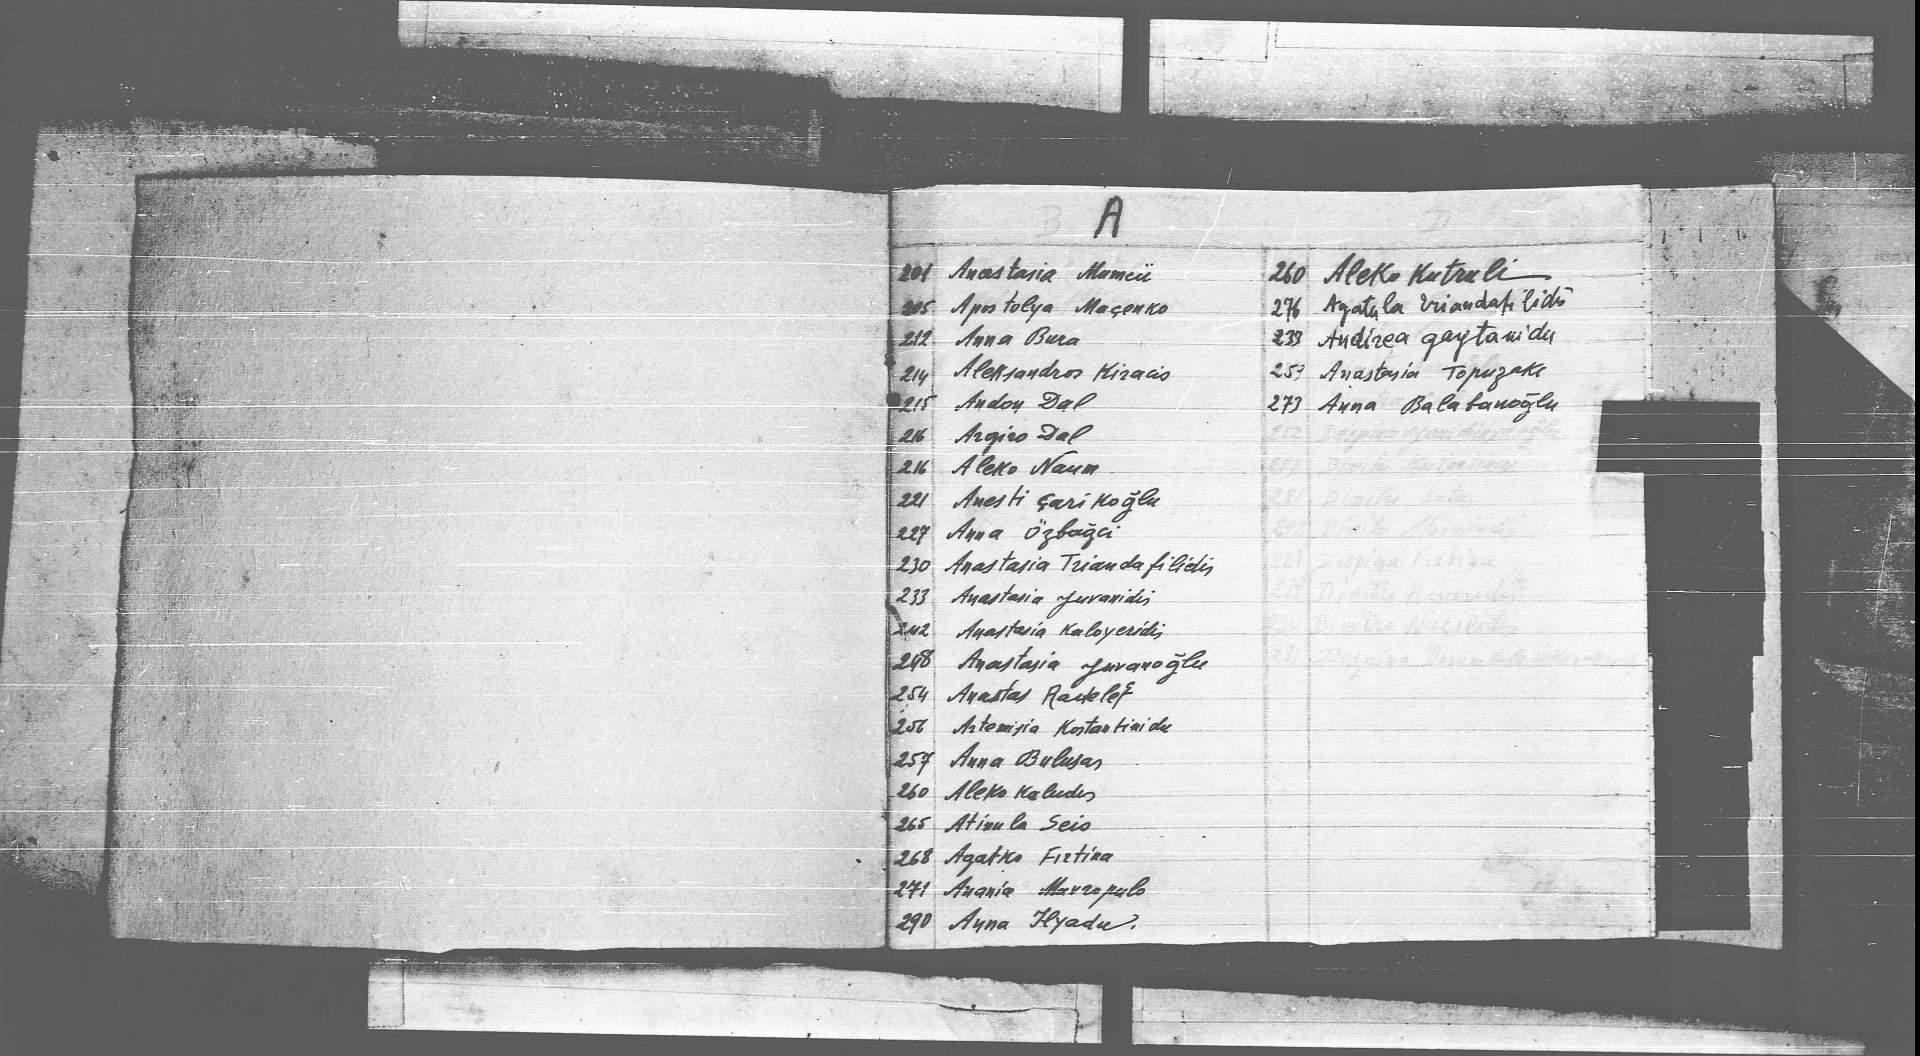 A
201 Anastasia Mumcü
205 Apostolya Maçenko
212 Anna Bura
214 Aleksandros Kiracis
215 Andon Dal
216 Argiro Dal
216 Aleko Naum
221 Anesti Çarikoğlu
227 Anna Özbağci
230 Anastasia Triandafilidis
233 Anastasia Yuvanidis
242 Anastasia Kaloyeridis
248 Anastasia Yuvanoğlu
254 Anastas
256 Artemisia Kostantinidu
257 Anna Bulusas
260 Aleko Kaludis
265 Atinula Seis
268 Agatko Firtina
271 Anania Mavropulo
290 Anna Ilyadu.
260 Aleko Kutruli
276 Agatula Triandafilidis
233 Andirea Gaytanidu
257 Anastasia Topuzake
273 Anna Balabanoğlu
D
Despina
Dimitri
Dimitri
Dimitri
Despina Firtina
Dimitri
Dimitro
Despina